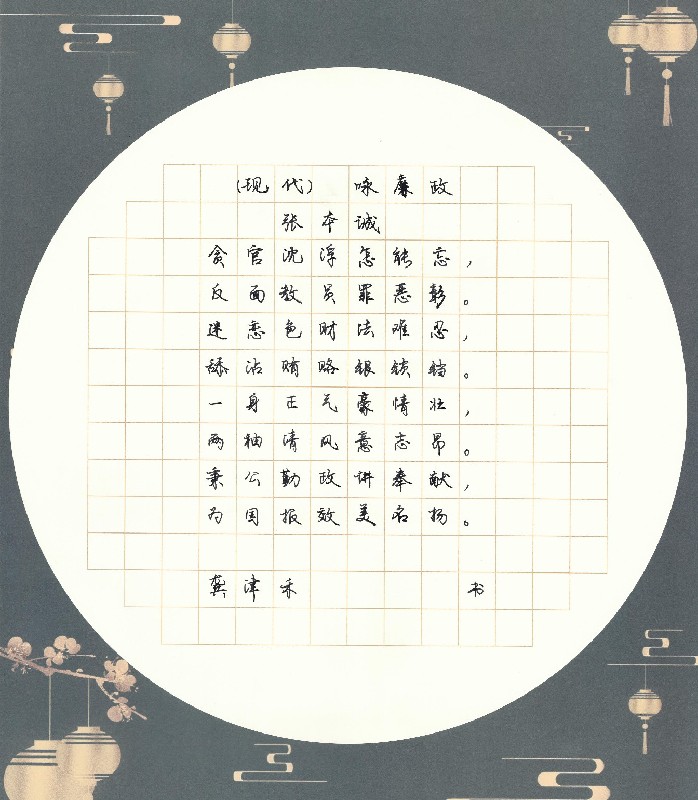 (现代) 咏廉政
张本诚
贪官沈浮怎能忘，
反面教员罪恶彰。
迷恋色财法难忍，
舔沾贿赂银锁铛。
一身正气豪情壮，
两袖清风意志昂。
秉公勤政讲奉献，
为国报效美名扬。
龚津禾 书